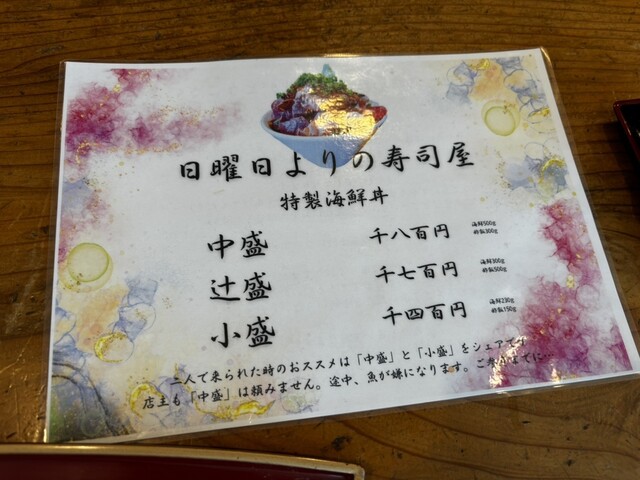 日曜日よりの寿司屋
特製海鮮丼
中盛 千八百円 海鮮500g 酢飯300g
辻盛 千七百円 海鮮300g 酢飯500g
小盛 千四百円 海鮮230g 酢飯150g
二人で来られた時のおススメは「中盛」と「小盛」をシェアです
店主も「中盛」は頼みません。途中、魚が嫌になります。ご参考までに…